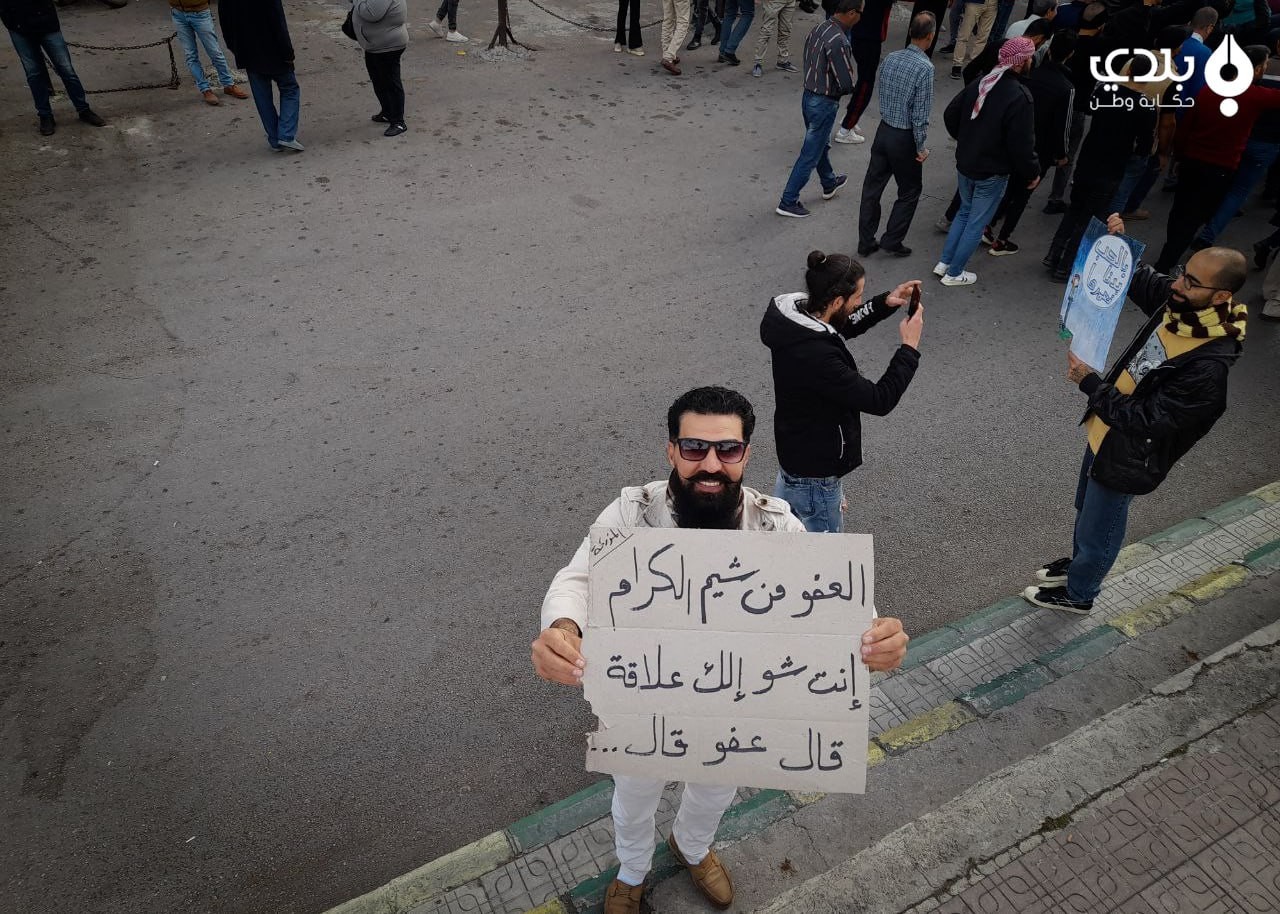 بلدي
حكاية وطن
العفو من شيم الكرام
إنت شو إلك علاقة
قال عفو قال...